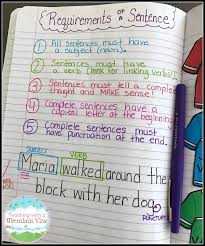 Requirements OF A Sentence
① All sentences must have
a subject (noun).
② Sentences must have
a verb (look for linking verbs!)
③ Sentences must tell a complete
thought and MAKE sense!
④ Complete sentences have a
capital letter at the beginning
⑤ Complete sentences must
have punctuation at the end.
SUBJECT VERB
Maria walked around the
block with her dog.
PUNCTUATION
Teaching with a
Mountain View